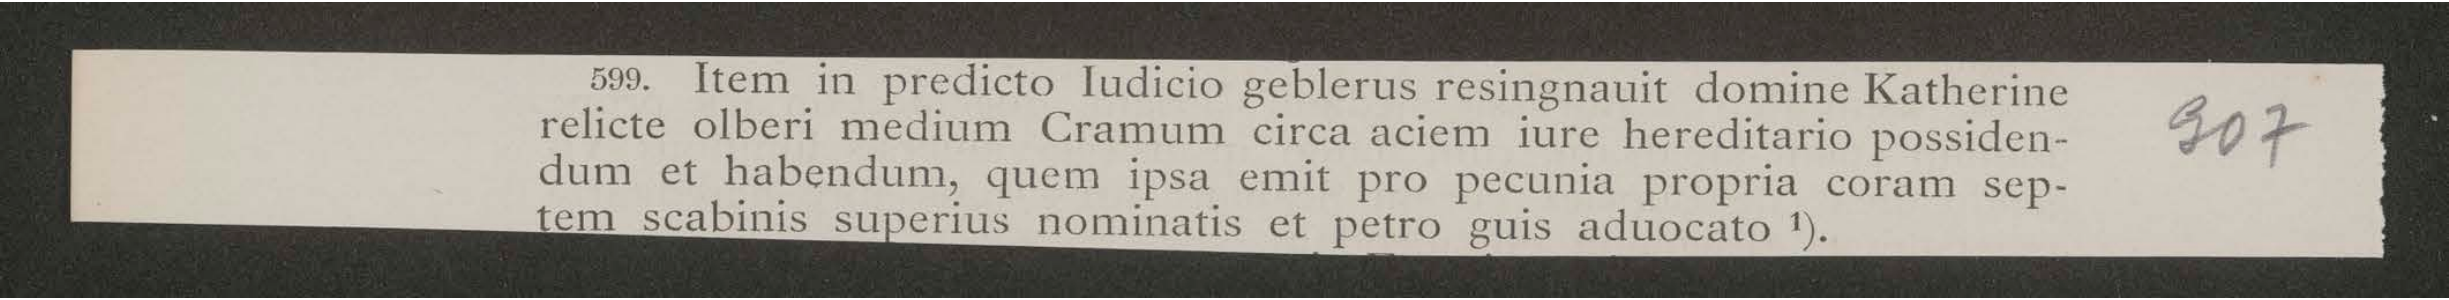 599. Item in predicto Iudicio geblerus resingnauit domine Katherine
relicte olberi medium Cramum circa aciem iure hereditario possiden-
dum et habendum, quem ipsa emit pro pecunia propria coram sep-
tem scabinis superius nominatis et petro guis aduocato ¹).
907